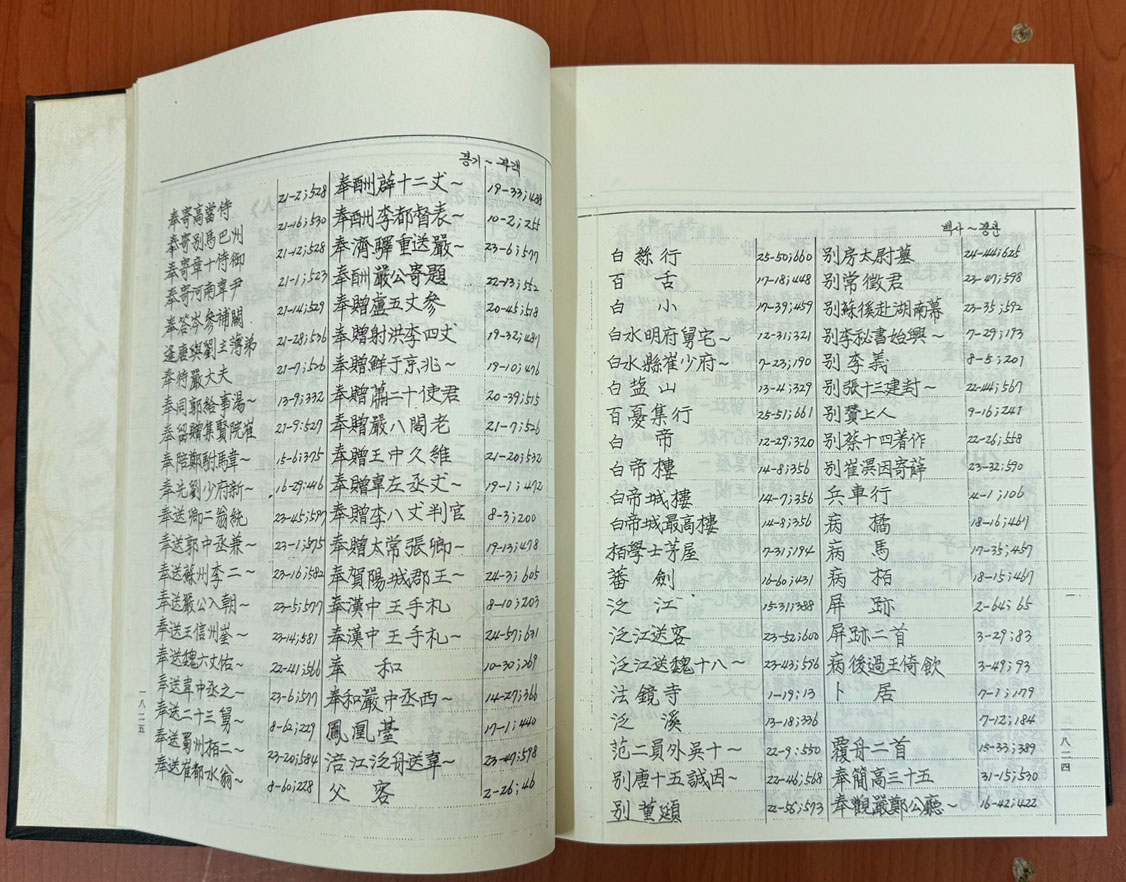 백사~봉관
白絲行 25-50;660
百舌 17-18;448
白小 17-39;459
白水明府舅宅~ 12-31;321
白水縣崔少府~ 7-23;190
白盐山 13-4;329
百憂集行 25-51;661
白帝 12-29;320
白帝樓 14-8;356
白帝城樓 14-7;356
白帝城最高樓 14-8;356
栢學士茅屋 7-31;194
蕃劍 16-60;431
泛江 15-31;388
泛江送客 23-52;600
泛江送魏十八~ 23-43;596
法鏡寺 1-19;13
泛溪 13-18;336
范二員外吳十~ 22-9;550
別唐十五誠因~ 22-46;568
別董頲 22-56;573
別房太尉墓 24-44;625
別常徵君 23-47;598
別蘇徯赴湖南幕 23-35;592
別李秘書始興~ 7-29;193
別李義 8-5;201
別張十三建封~ 22-44;567
別贊上人 9-16;241
別蔡十四著作 22-26;558
別崔潩因寄薛 23-32;590
兵車行 4-1;106
病橘 18-16;467
病馬 17-35;457
病栢 18-15;467
屏跡 2-64;65
屏跡二首 3-29;83
病後過王倚飲 3-49;93
卜居 7-1;179
7-12;184
覆舟二首 15-33;389
奉簡高三十五 31-15;530
奉觀嚴鄭公廳~ 16-42;422
八二四
봉기~부객
奉寄高當侍 21-2;528
奉寄別馬巴州 21-16;530
奉寄章十侍御 21-12;528
奉寄河南韋尹 21-1;523
奉答岑參補闕 21-14;529
逢唐興劉主簿弟 21-28;536
奉待嚴大夫 21-7;526
奉同郭給事湯~ 13-9;332
奉留贈集賢院崔 21-9;527
奉陪鄭駙馬韋~ 15-6;375
奉先劉少府新~ 16-29;446
奉送卿二翁統 23-45;597
奉送郭中丞兼~ 23-1;575
奉送蘇州李二~ 23-16;582
奉送嚴公入朝~ 23-5;577
奉送王信州崟~ 23-14;581
奉送魏六丈佑~ 22-41;566
奉送韋中丞之~ 23-6;577
奉送二十三舅~ 8-62;229
奉送蜀州栢二~ 23-20;584
奉送崔都水翁~ 8-60;228
奉酬薜十二丈~ 19-33;488
奉酬李都督表~ 10-2;255
奉濟驛重送嚴~ 23-6;577
奉酬嚴公寄題 22-13;552
奉贈盧五丈參 20-45;518
奉贈射洪李四丈 19-32;487
奉贈鮮于京兆~ 19-10;476
奉贈蕭二十使君 20-39;515
奉贈嚴八閣老 21-7;526
奉贈王中久維 21-20;532
奉贈韋左丞丈~ 19-1;472
奉贈李八丈判官 8-3;200
奉贈太常張卿~ 19-13;478
奉賀陽城郡王~ 24-3;605
奉漢中王手札 8-10;203
奉漢中王手札~ 24-57;631
奉和 10-30;269
奉和嚴中丞西~ 14-27;366
鳳凰臺 17-1;440
涪江泛舟送韋~ 23-47;598
父客 2-26;46
一八二五